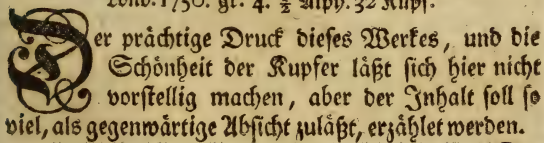 Lond. 1750. gr. 4. ½ Alph. 32 Kupf.
Der prächtige Druck dieses Werkes, und die
Schönheit der Kupfer läßt sich hier nicht
vorstellig machen, aber der Inhalt soll so
viel, als gegenwärtige Absicht zuläßt, erzählet werden.